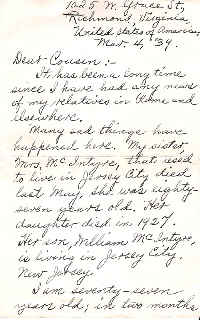 1025 W. Grace St,
Richmond, Virginia,
United States of America,
Mar. 4, '39.
Dear Cousin :-
It has been a long time
since I have had any news
of my relatives in and
elsewhere.
Many sad things have
happened here. My sister,
Mrs. McIntyre, that used
to live in Jersey City died
last May. She was eighty-
seven years old. Her
daughter died in 1927.
Her son, William McIntyre,
is living in Jersey City.
New Jersey.
I am seventy-seven
years old; in two months